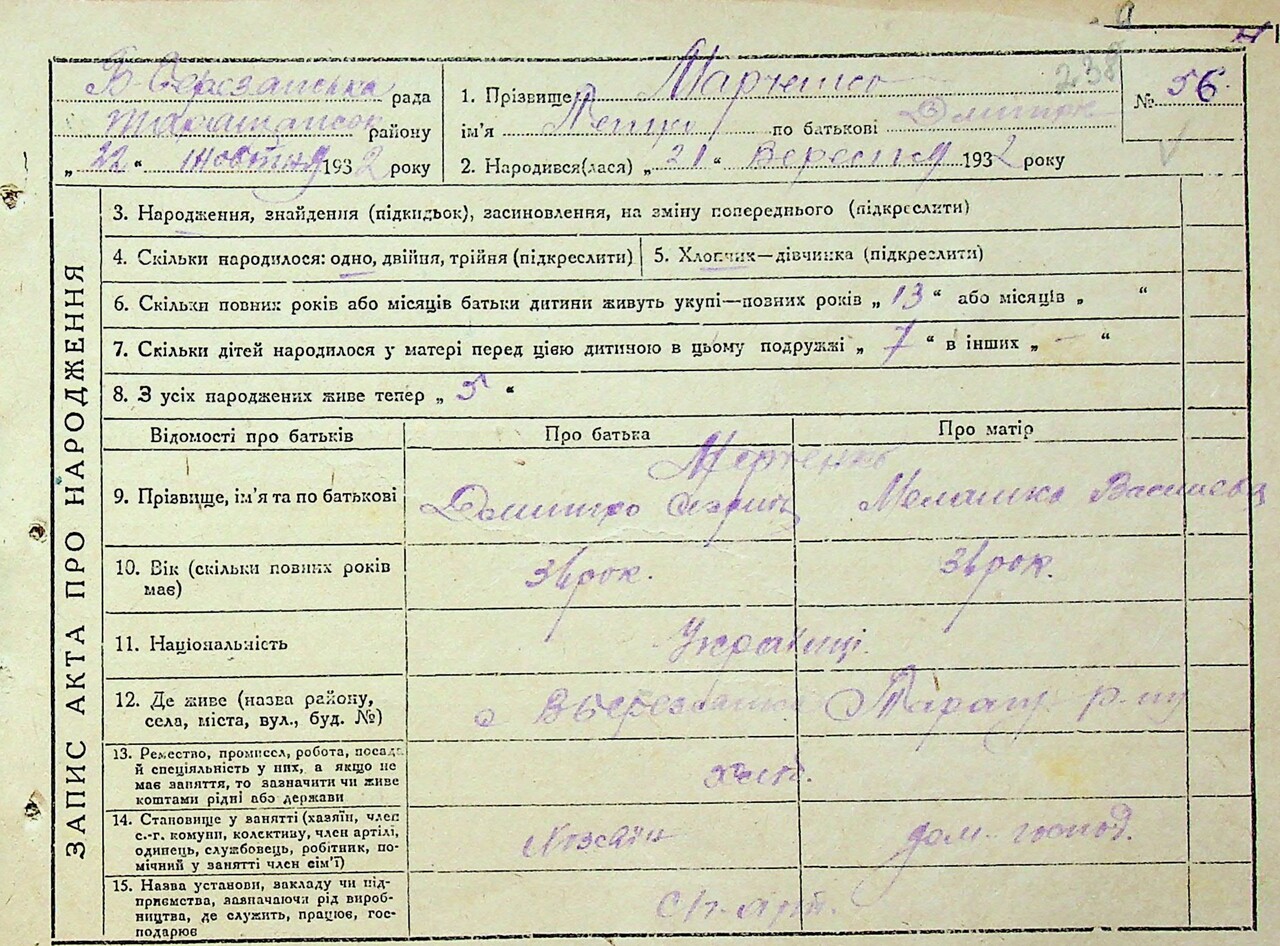 238
Б-Березанська рада
района Таращанськ району
„ 22 “ жовтня 1932 року
1. Прізвище Марченко
ім'я Петро по батькові Дмитров
2. Народився(лася) „ 21 “ Вересня 1932 року
№ 56.
ЗАПИС АКТА ПРО НАРОДЖЕННЯ
3. Народження, знайдення (підкидьок), засиновлення, на зміну попереднього (підкреслити)
4. Скільки народилося: одно, двійня, трійня (підкреслити)
5. Хлопчик—дівчинка (підкреслити)
6. Скільки повних років або місяців батьки дитини живуть укупі—повних років „ 13 “ або місяців „ “
7. Скільки дітей народилося у матері перед цією дитиною в цьому подружжі „ 7 “ в інших „ — “
8. З усіх народжених живе тепер „ 5 “
Відомості про батьків
Про батька
Про матір
9. Прізвище, ім'я та по батькові
Марченко
Дмитро
Мелашка Василева
10. Вік (скільки повних років
має)
рок.
рок.
11. Національність
Українці.
12. Де живе (назва району,
села, міста, вул., буд. №)
с Таращ р-ну
13. Ремество, промисел, робота, посада
й спеціяльність у них, а якщо не
має заняття, то зазначити чи живе
коштами рідні або держави
14. Становище у занятті (хазяїн, член
с.-г. комуни, колективу, член артілі,
одинець, службовець, робітник, по-
мічний у занятті член сім'ї)
дом-господ.
15. Назва установи, закладу чи під-
приємства, зазначаючи рід вироб-
ництва, де служить, працює, гос-
подарює
с/г. арт.